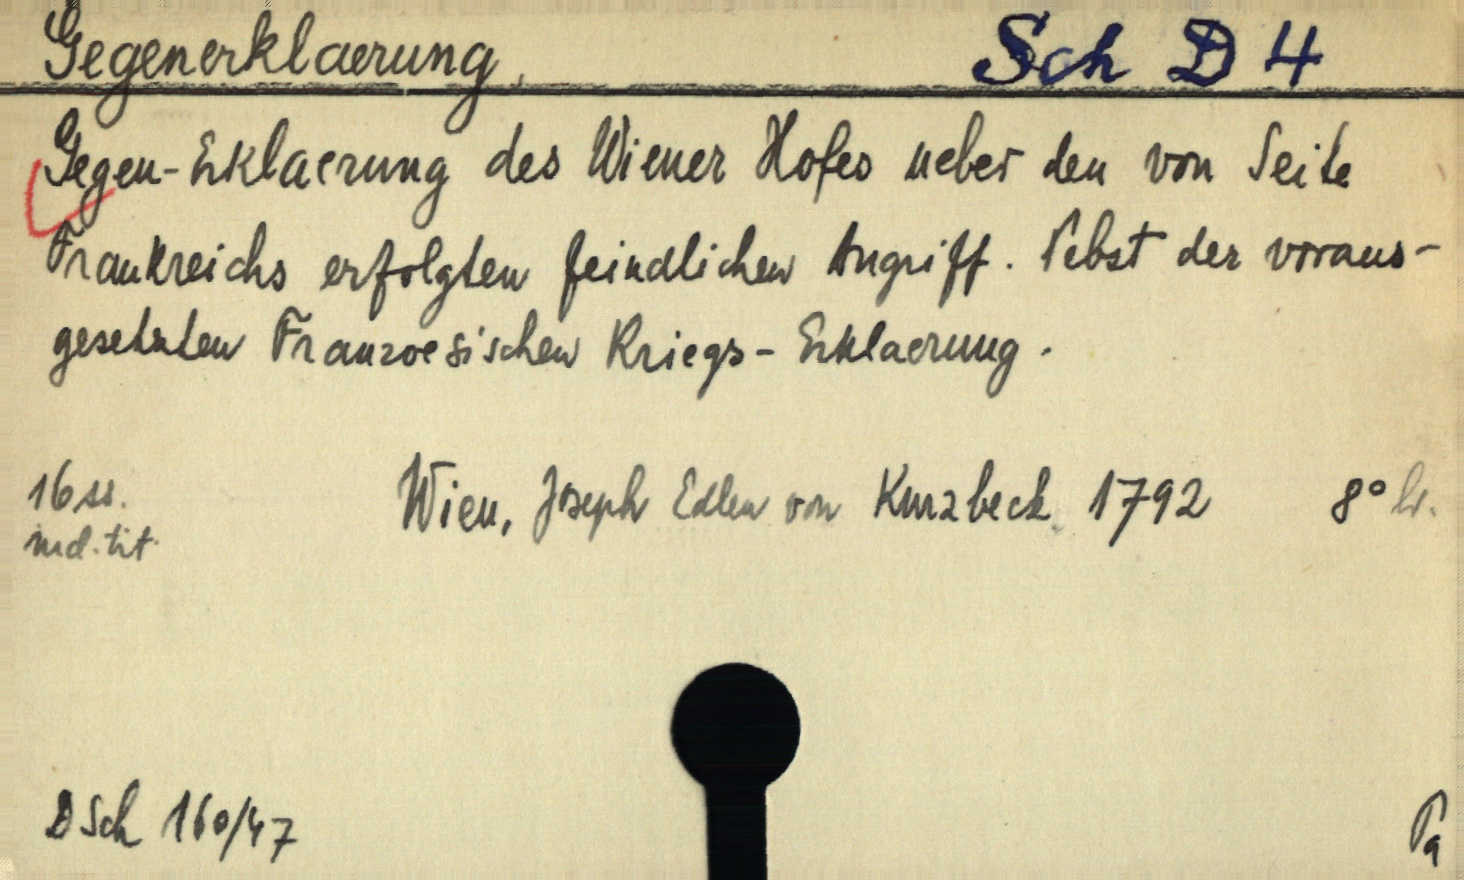 Gegenerklaerung. Sch D 4
Gegen-Erklaerung des Wiener Hofes ueber den von Seite
Frankreichs erfolgten feindlichen Angriff. Nebst der voraus-
gesetzten Franzoesischen Kriegs-Erklaerung.
16 ss. Wien, Joseph Edlen von Kurzbeck 1792 8°
incl. tit.
D Sch 160/47